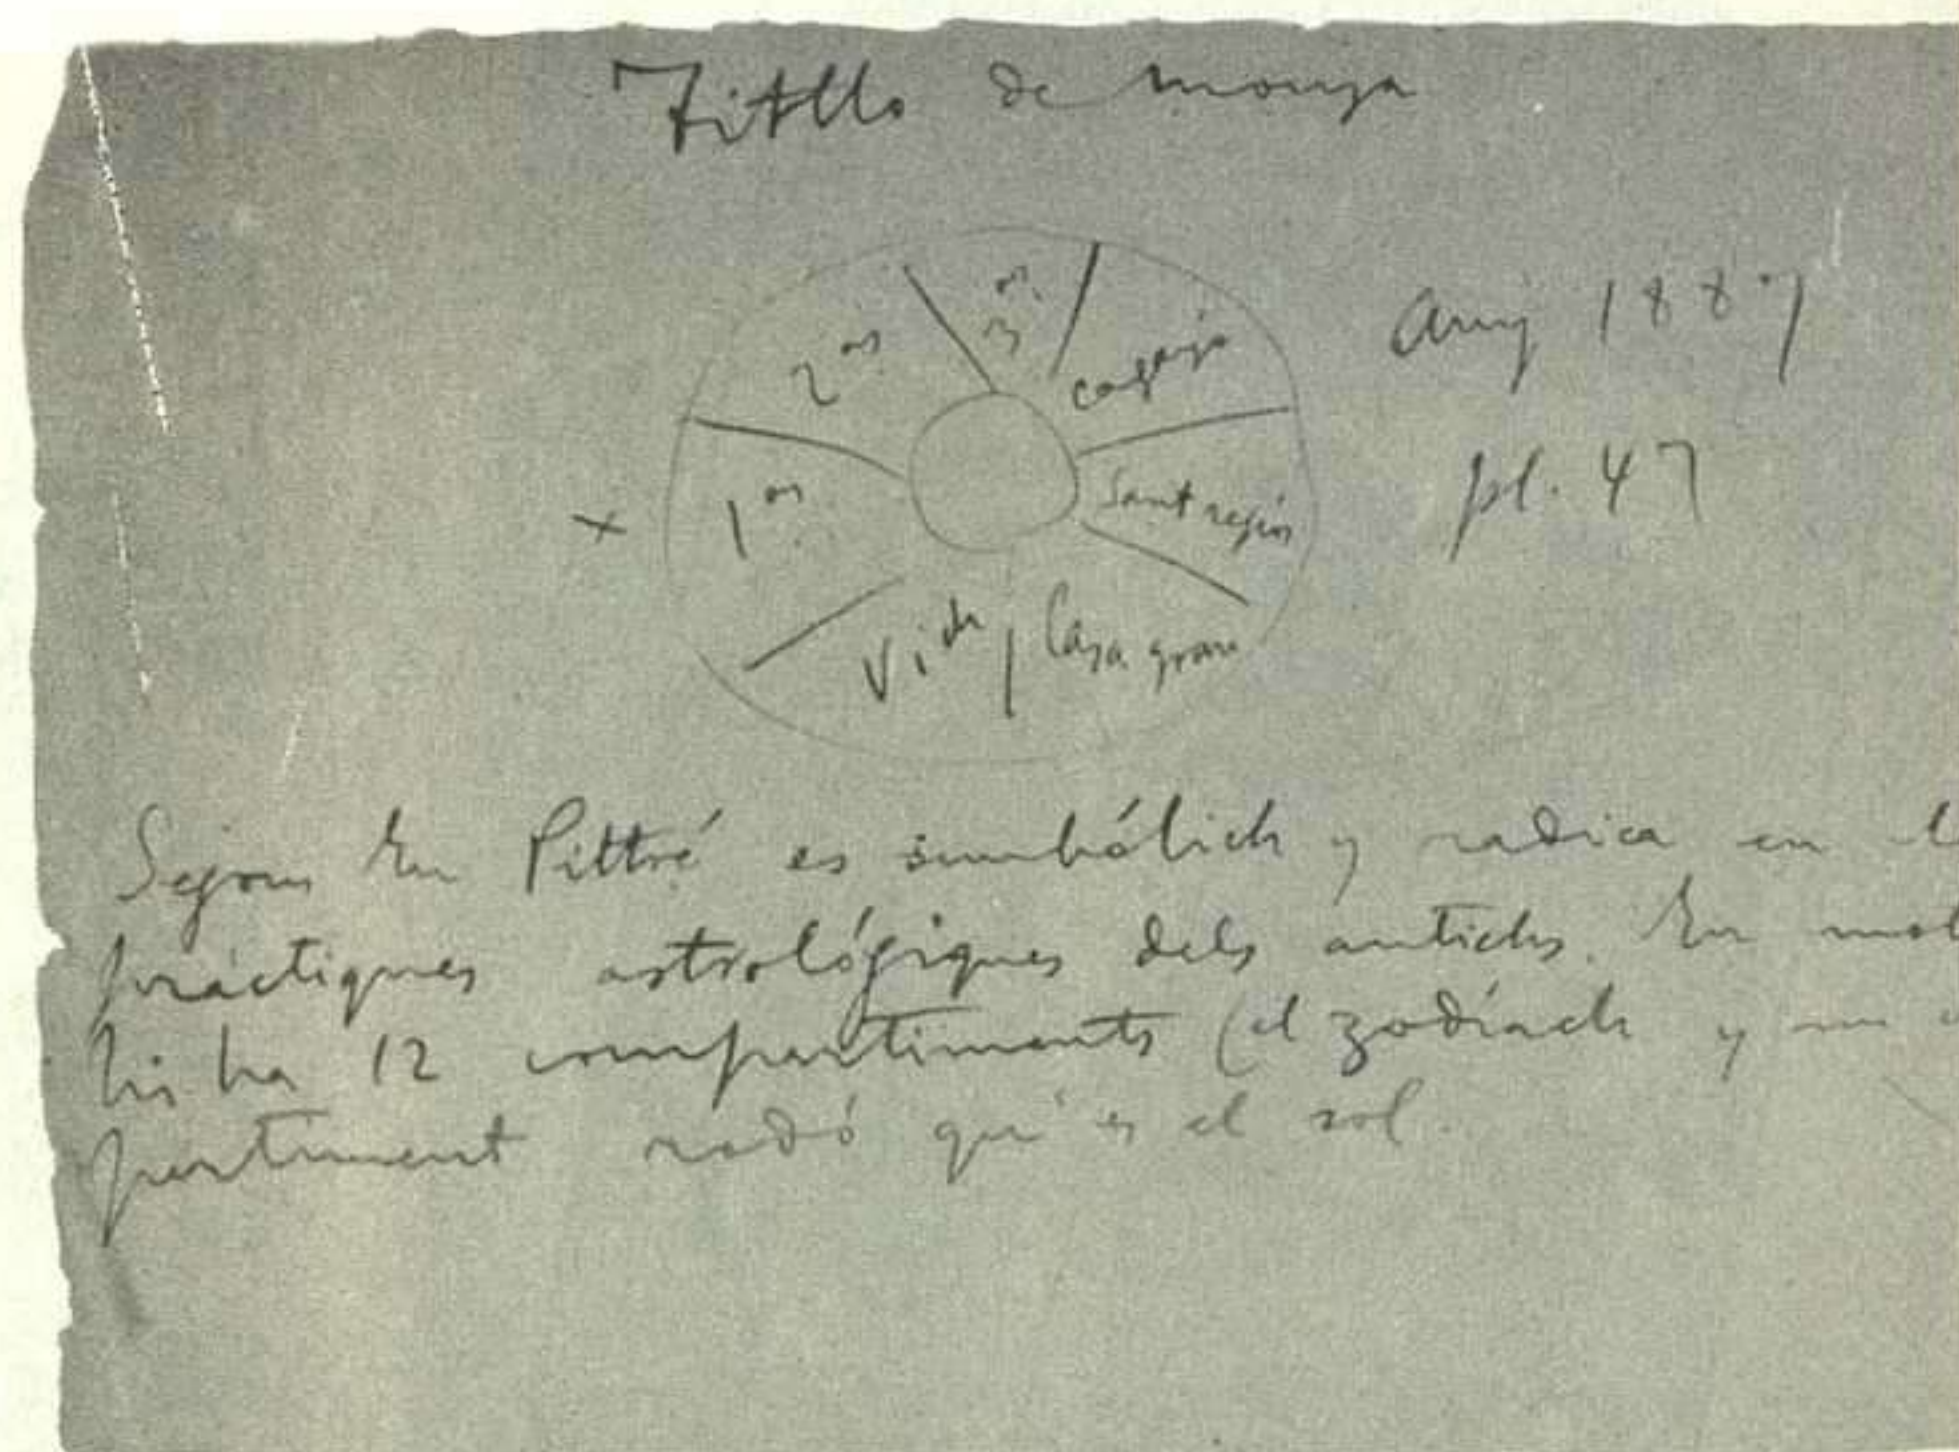 Titllo de monja
2as 3as
Any 1887
1as Sant regiós
pl. 47
x
Vida Casa gran
Segons En Pittré es simbólich y radica en l
práctiques astrológiques dels antichs. En mol
hi ha 12 compartiments (el zodíach y un c
partiment rodó qu'es el sol.